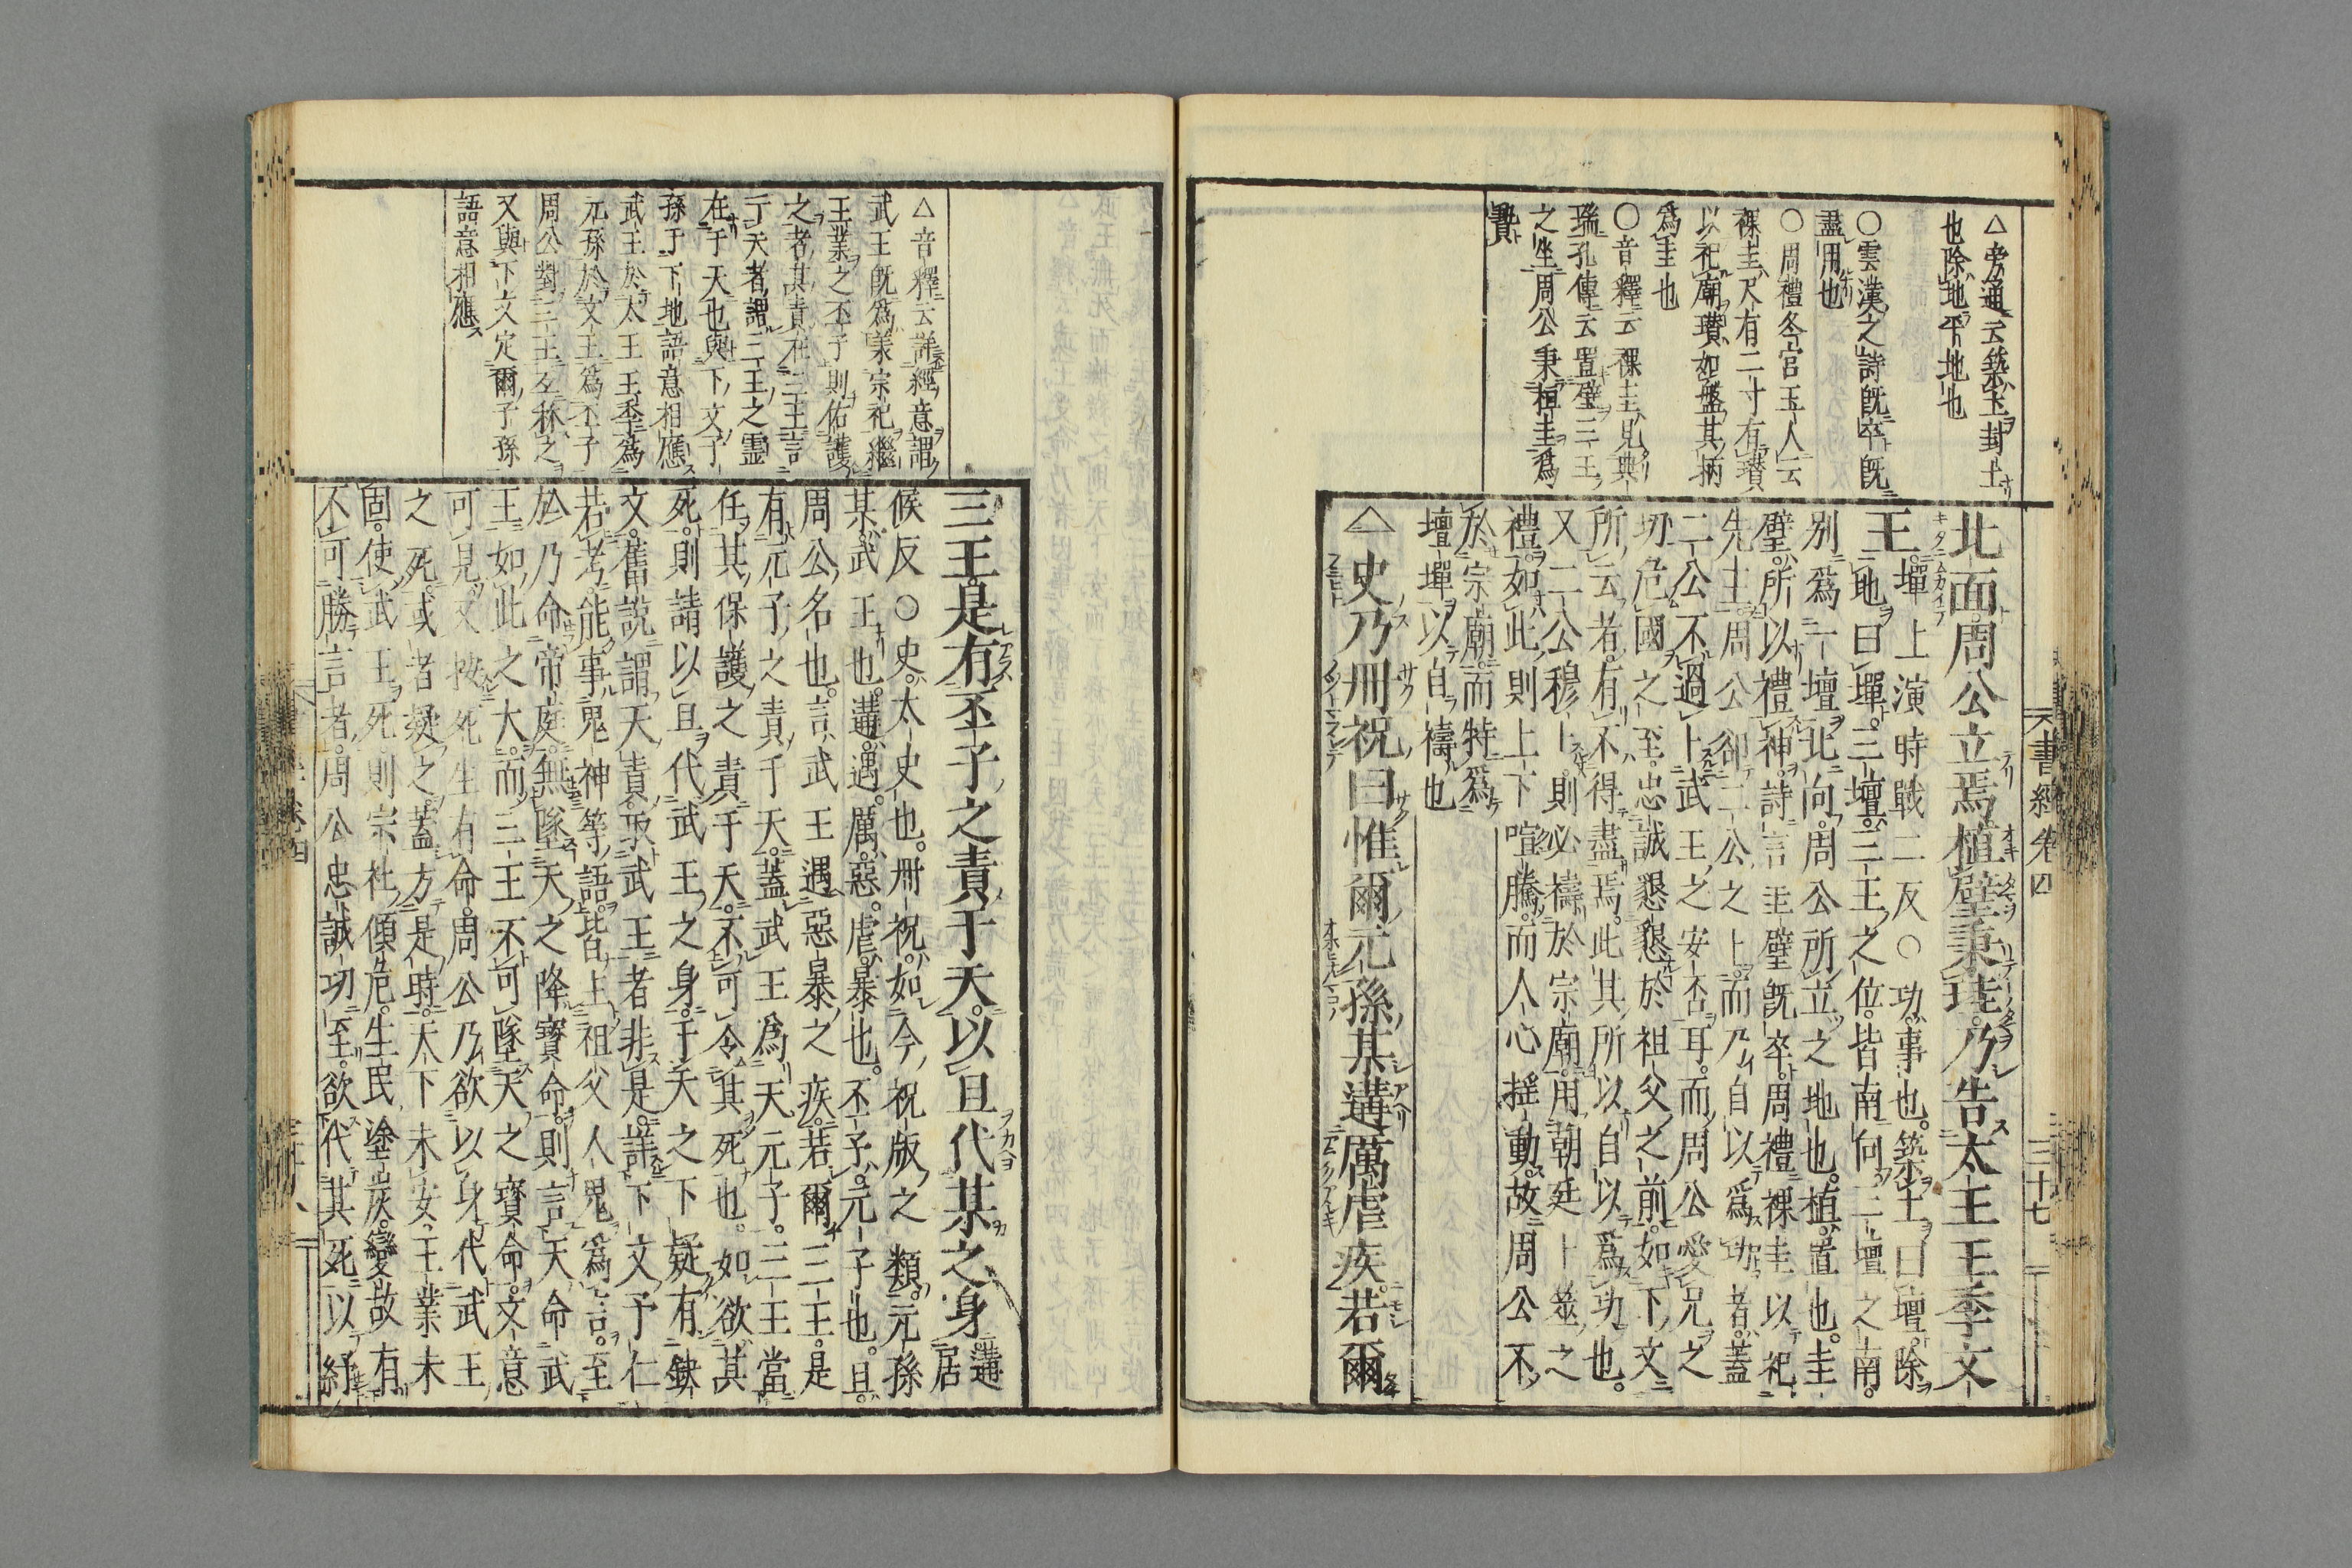 △旁通云築土封土
也除地平地也
○雲漢之詩既卒既
盡用也
○周禮冬官玉人云
祼圭尺有二寸有瓚
以祀廟瓚如盤其柄
為圭也
○音釋云祼圭見典
瑞孔傳云置璧三王
之坐周公秉桓圭為
贄
北面周公立焉植璧秉珪乃告太王王季文
王墠上演時戰二反○功事也築土曰壇除
地曰墠三壇三王之位皆南向三壇之南
別為一壇北向周公所立之地也植置也圭
璧所以禮神詩言圭璧既卒周禮祼圭以祀
先王周公卻二公之卜而乃自以為功者蓋
二公不過卜武王之安否耳而周公愛兄之
切危國之至忠誠懇懇於祖父之前如下文
所云者有不得盡焉此其所以自以為功也
又二公穆卜則必禱於宗廟用朝廷卜筮之
禮如此則上下喧騰而人心搖動故周公不
於宗廟而特為
壇墠以自禱也
△史乃冊祝曰惟爾元孫某遘厲虐疾若爾
書經卷四
三十七
△音釋云詳經意謂
武王既為家宗祀繼
王業之丕子則佑護
之者其責在三王言
于天者謂三王之靈
在于天也與下文子
孫于下地語意相應
武王於太王王季為
元孫於文王為丕子
周公對三王互稱之
又與下文定爾子孫
語意相應
三王是有丕子之責于天以旦代某之身遘居
候反○史太史也冊祝如今祝版之類元孫
某武王也遘遇厲惡虐暴也丕子元子也旦
周公名也言武王遇惡暴之疾若爾三王是
有元子之責于天蓋武王為天元子三王當
任其保護之責于天不可令其死也如欲其
死則請以旦代武王之身于天之下疑有缺
文舊說謂天責取武王者非是詳下文予仁
若考能事鬼神等語皆主祖父人鬼為言至
於乃命帝庭無墜天之降寶命則言天命武
王如此之大而三王不可墜天之寶命文意
可見又按死生有命周公乃欲以身代武王
之死或者疑之蓋方是時天下未安王業未
固使武王死則宗社傾危生民塗炭變故有
不可勝言者周公忠誠切至欲代其死以紓